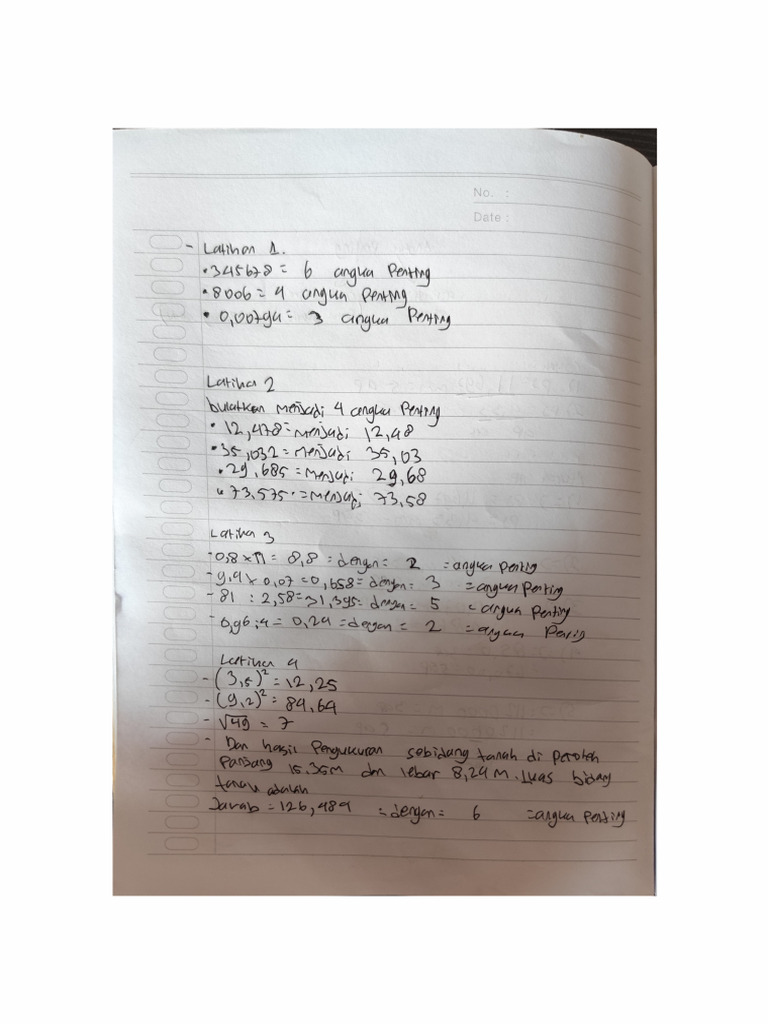 No. :
Date :
- Latihan 1.
• 345678 = 6 angka Penting
• 8006 = 4 angka Penting
• 0,00794 = 3 angka Penting
Latiha 2
bulatkan menjadi 4 angka Penting
• 12,478 = menjadi 12,48
• 35,032 = menjadi 35,03
• 29,685 = menjadi 29,68
• 73,575 = menjadi 73,58
Latiha 3
- 0,8 × 11 = 8,8 = dengan = 2 = angka penting
- 9,4 × 0,07 = 0,658 = dengan = 3 = angka Penting
- 81 : 2,58 = 31,395 = dengan = 5 = angka Penting
- 0,96 : 4 = 0,24 = dengan = 2 = angka
Latiha 4
- (3,5)² = 12,25
- (9,2)² = 84,64
- √49 = 7
- Dan hasil Pengukuran sebidang tanah di Peroleh
Panjang 15,35 m dan lebar 8,24 M. luas bidang
tanah adalah
Jawab = 126,484 = dengan = 6 = angka Penting